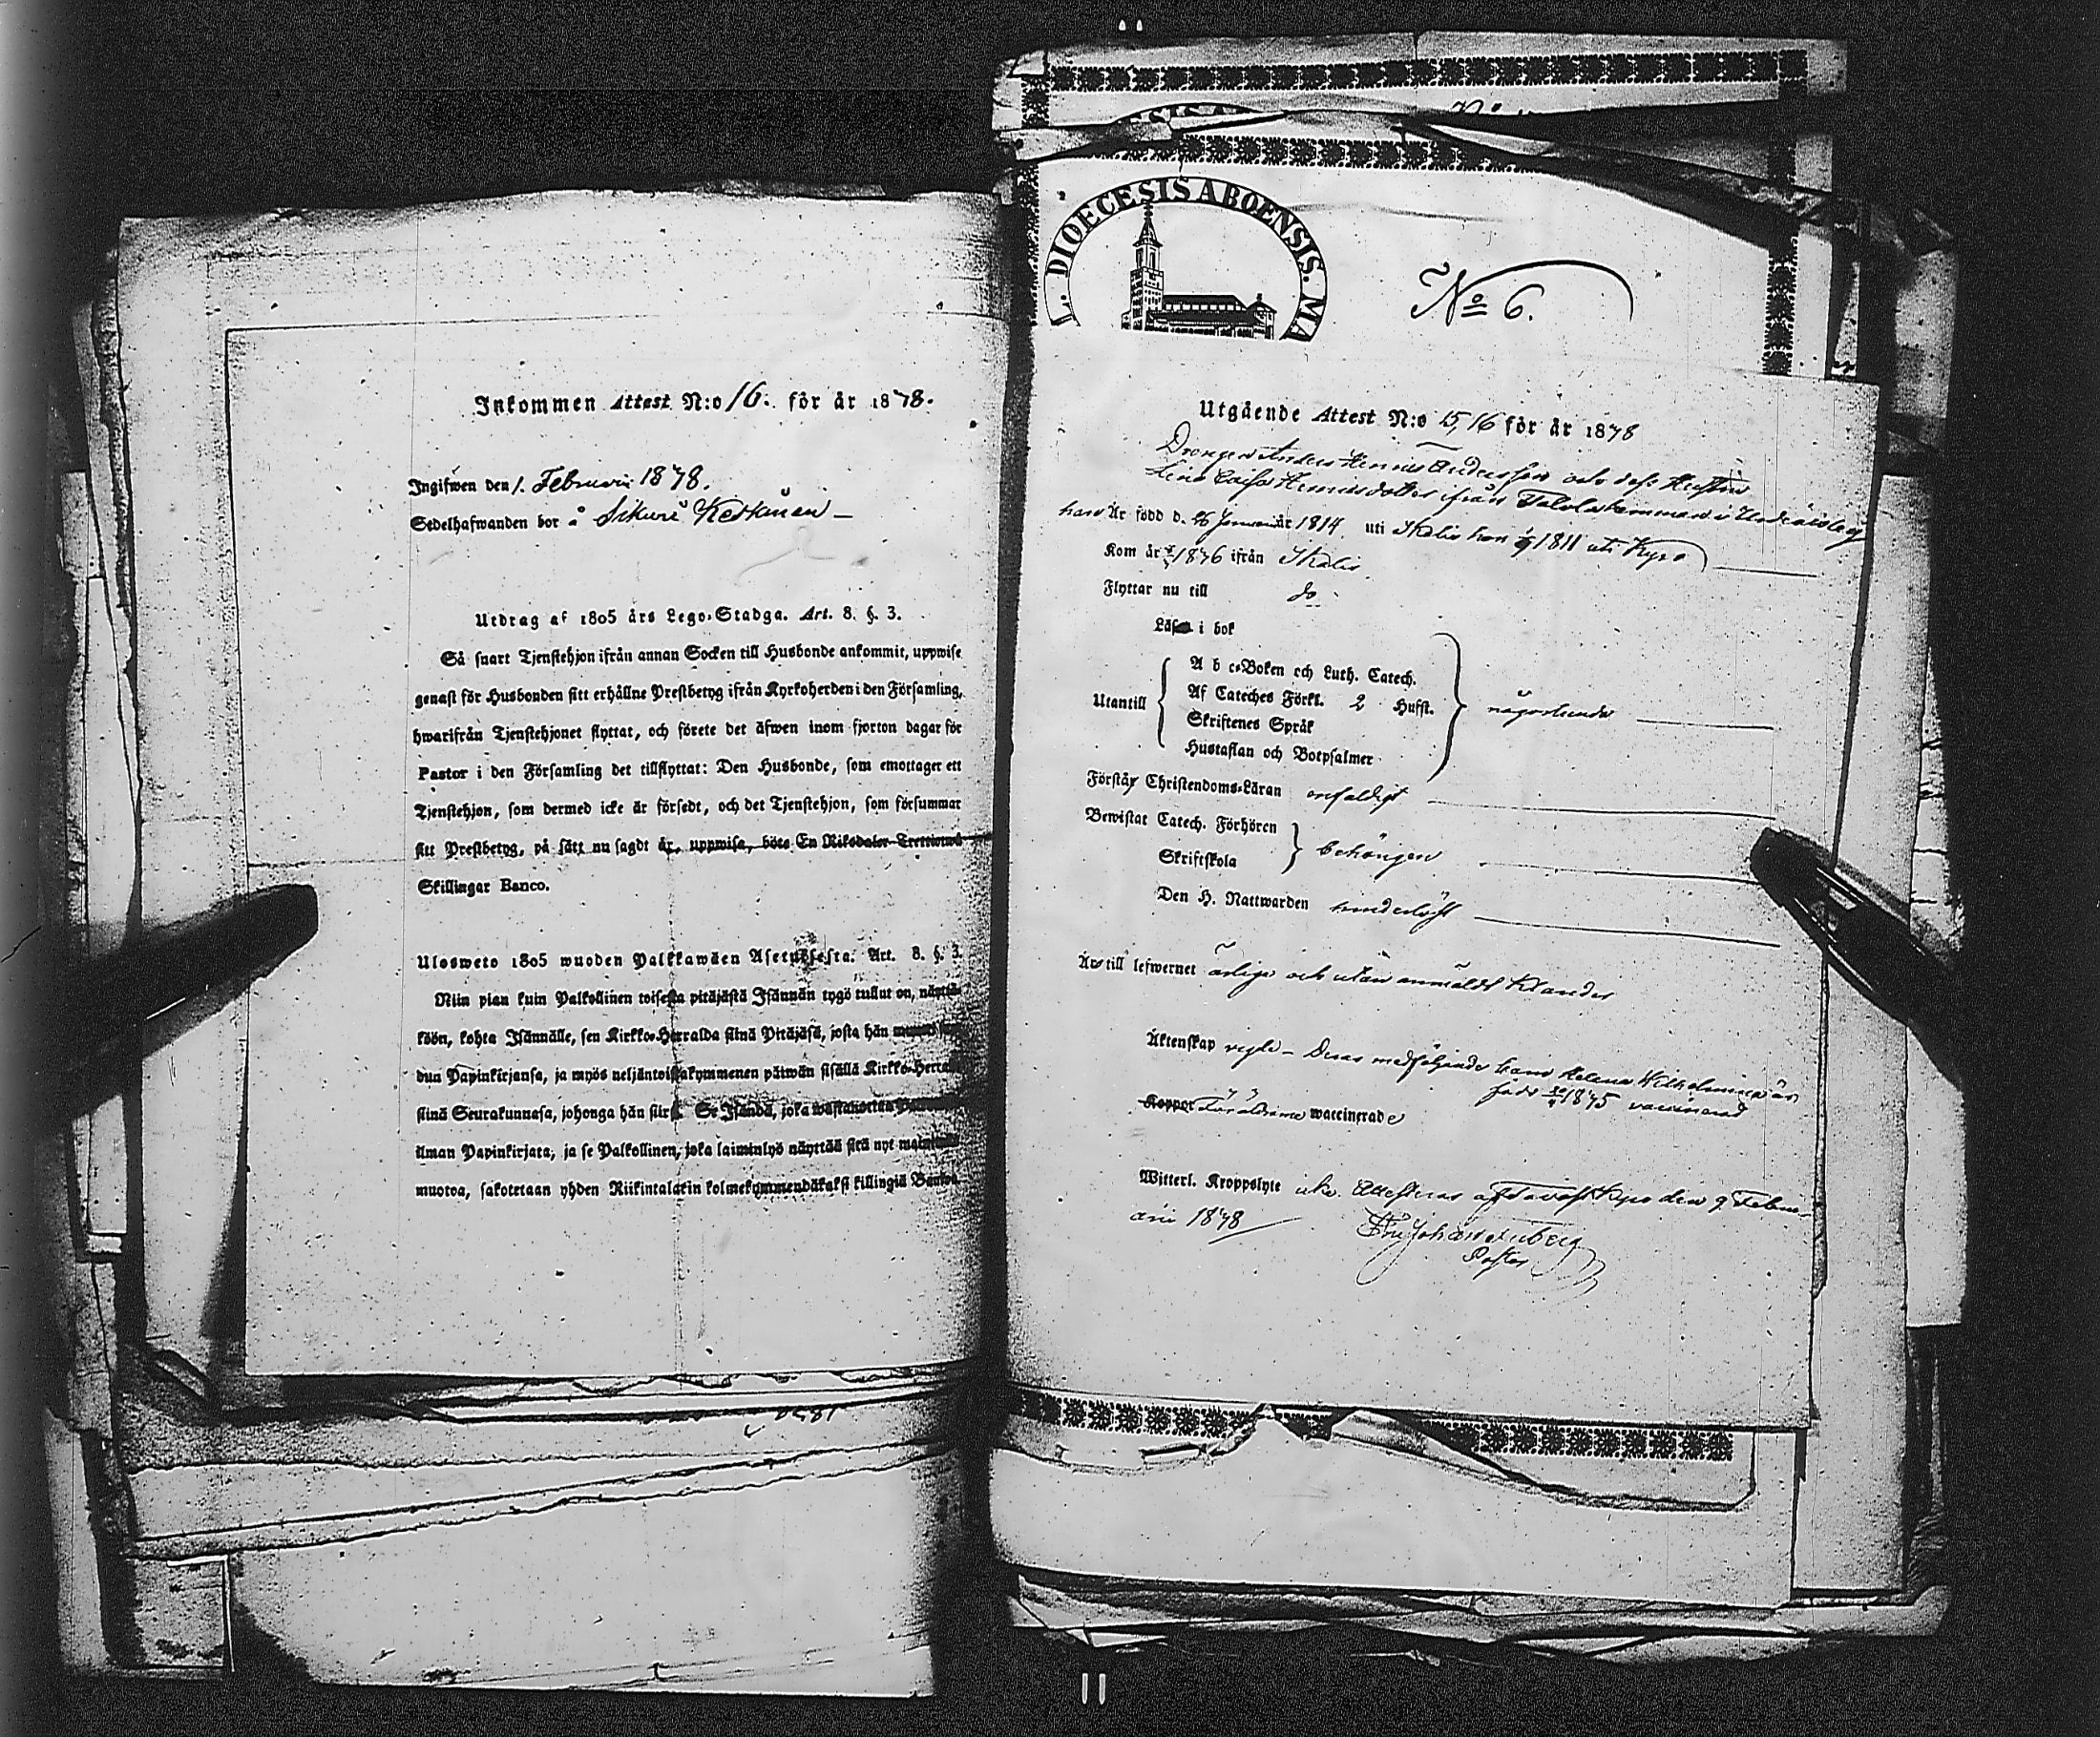 Inkommen Attest N:o 16. för år 1878.
Ingifwen den 1. Februarii 1878.
Sedelhafwanden bor å Sikuri
Utdrag af 1805 års Lego-Stadga. Art. 8. §. 3.
Så snart Tjenstehjon ifrån annan Socken till Husbonde ankommit, uppwise
genast för Husbonden sitt erhållne Prestbetyg ifrån Kyrkoherden i den Församling,
hwarifrån Tjenstehjonet flyttat, och förete det äfwen inom fjorton dagar för
Pastor i den Församling det tillflyttat: Den Husbonde, som emottager ett
Tjenstehjon, som dermed icke är försedt, och det Tjenstehjon, som försummar
sitt Prestbetyg, på sätt nu sagdt är, uppwisa, böte En Riksdaler Trettiotwå
Skillingar Banco.
Ulosweto 1805 wuoden Palkkawäen Asetuksesta. Art. 8. §. 3.
Niin pian kuin Palkollinen toisesta pitäjästä Isännän tygö tullut on, näyttä-
köön, kohta Isännälle, sen Kirkko-Herralda siinä Pitäjäsä, josta hän
dun Papinkirjansa, ja myös neljäntoistakymmenen päiwän sisällä Kirkko-Herralle
siinä Seurakunnasa, johonga hän siirsi. Se Isändä, joka wastanottaa Palkollisen
ilman Papinkirjata, ja se Palkollinen, joka laiminlyö näyttää sitä nyt mainitulla
muotoa, sakotetaan yhden Riikintalarin kolmekymmendäkaksi killingiä Bankoa.
L. DIOECESIS ABOENSIS. MA
No 6.
Utgående Attest N:o 15, 16 för år 1878
Drängen Anders Henric Andersson och dess Hustru
Lina Caisa Henricsdotter ifrån
han Är född d. 26 Januarii år 1814 uti Ikalis hon 1811 uti Kyro
Kom år 1876 ifrån Ikalis
Flyttar nu till do
Läsa i bok
Utantill
A b c-Boken och Luth. Catech.
Af Cateches Förkl. 2 Hufst.
Skriftenes Språk
Hustaflan och Botpsalmer
någorlunda
Förstår Christendoms-Läran enfaldigt
Bewistat Catech. Förhören
Skriftskola
behörigen
Den H. Nattwarden
Äro till lefwernet ärliga och utan anmäldt klander
Äktenskap Deras medföljande barn Helena Wilhelmina är
född 1875 vaccinerad
Koppor Föräldrarne waccinerade
Witterl. Kroppslyte icke. Attesteras af Tavastkyro den 9 Febru-
arii 1878
Pastor